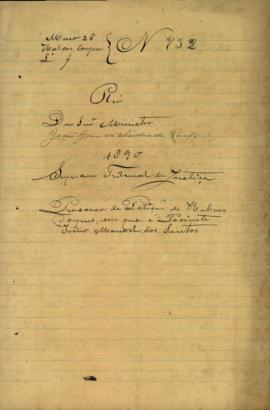 Maio 28
Habeas Corpus
N 732
Rio
Do Snr Ministro
João
1890
Supremo Tribunal de Justiça
Processo de Petição de Habeas
Corpus, em que é Paciente
Manoel dos Santos